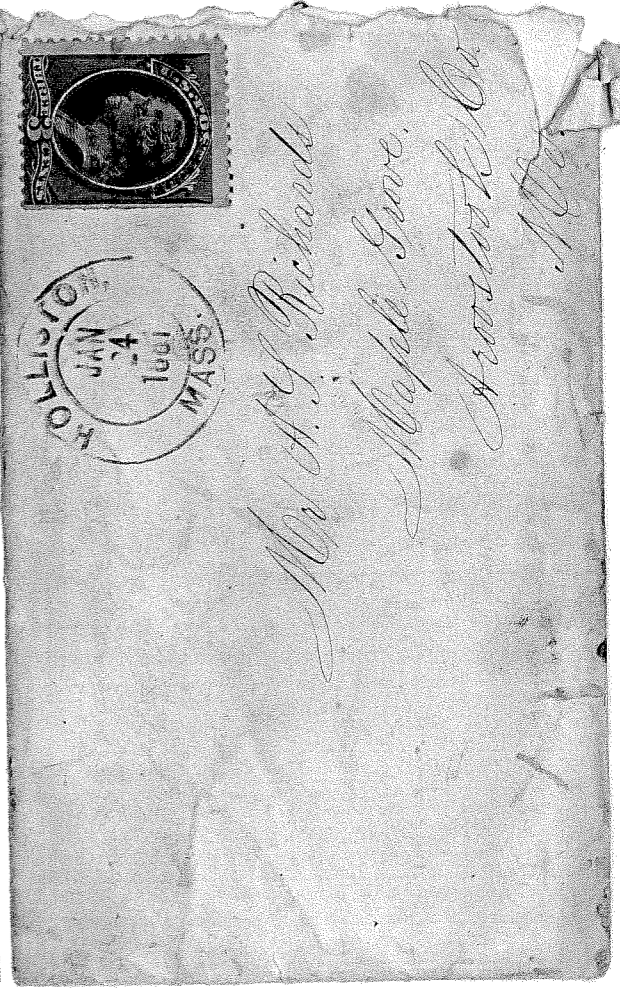 U.S. POSTAGE
HOLLISTON,
JAN
24
1881
MASS.
Mr A. S. Richards
Maple Grove.
Aroostook Co.